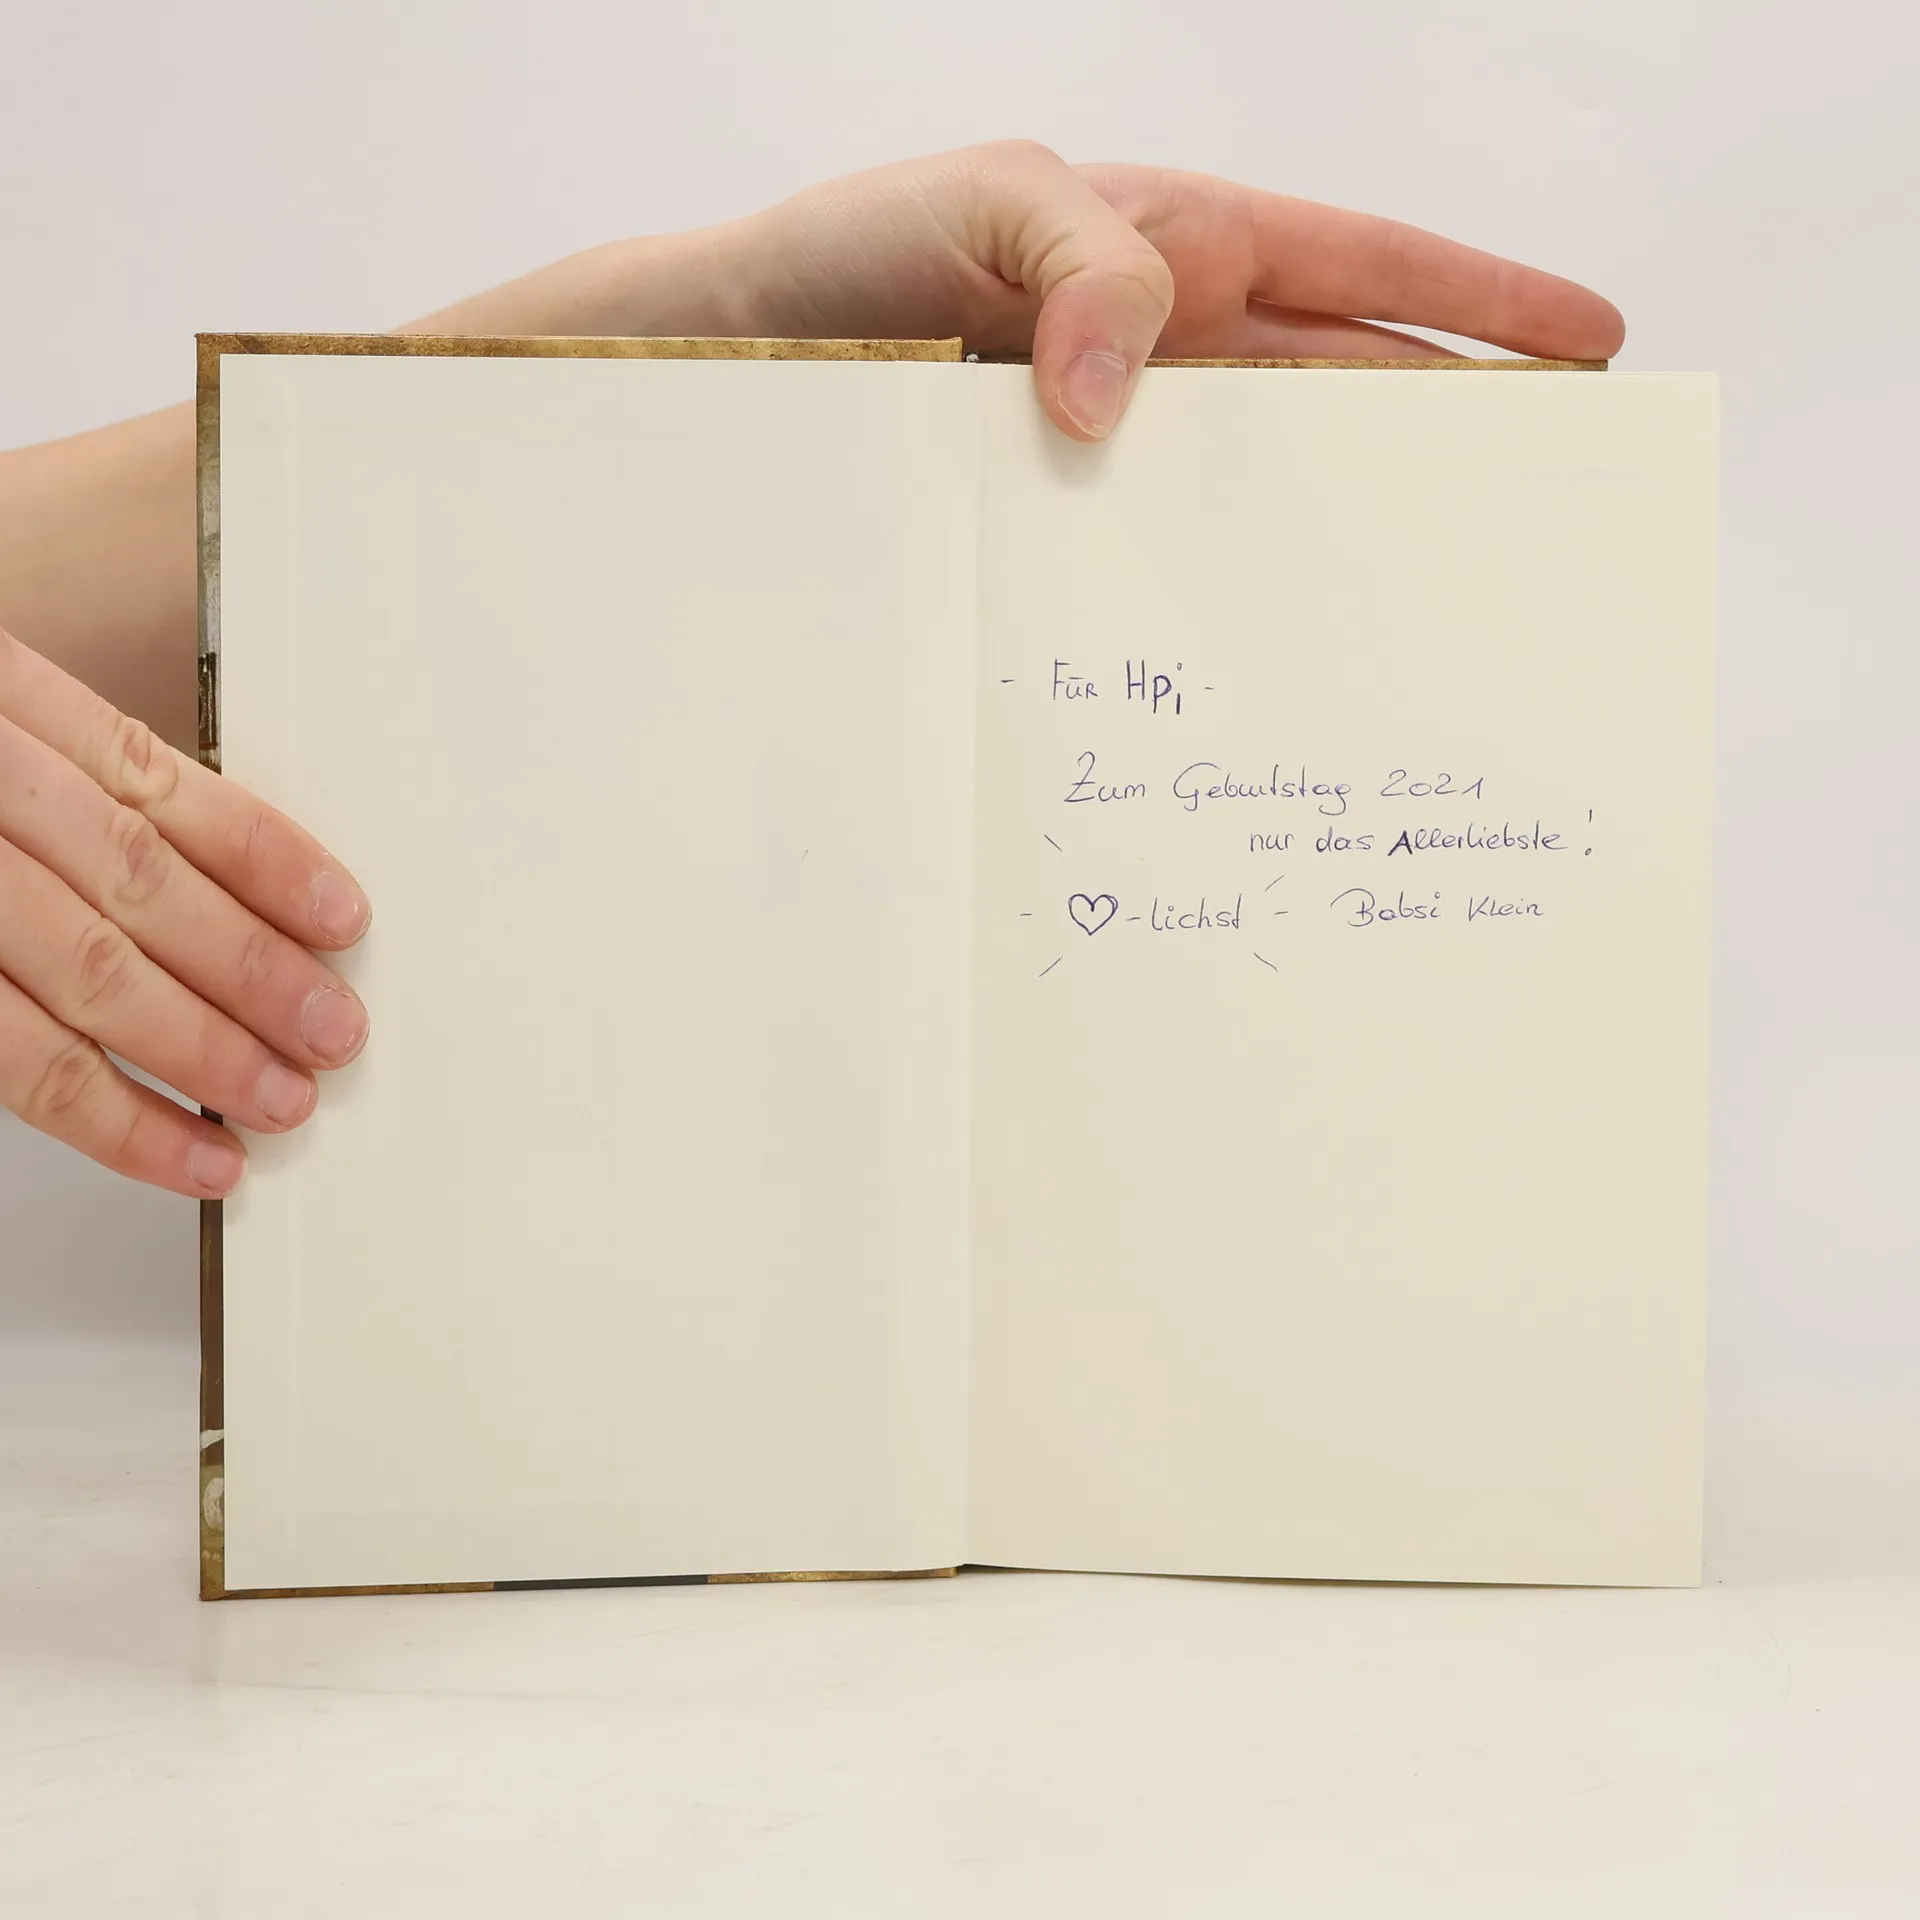 - Für Hpi -
Zum Geburtstag 2021
nur das Allerliebste!
- ♡-lichst - Babsi Klein